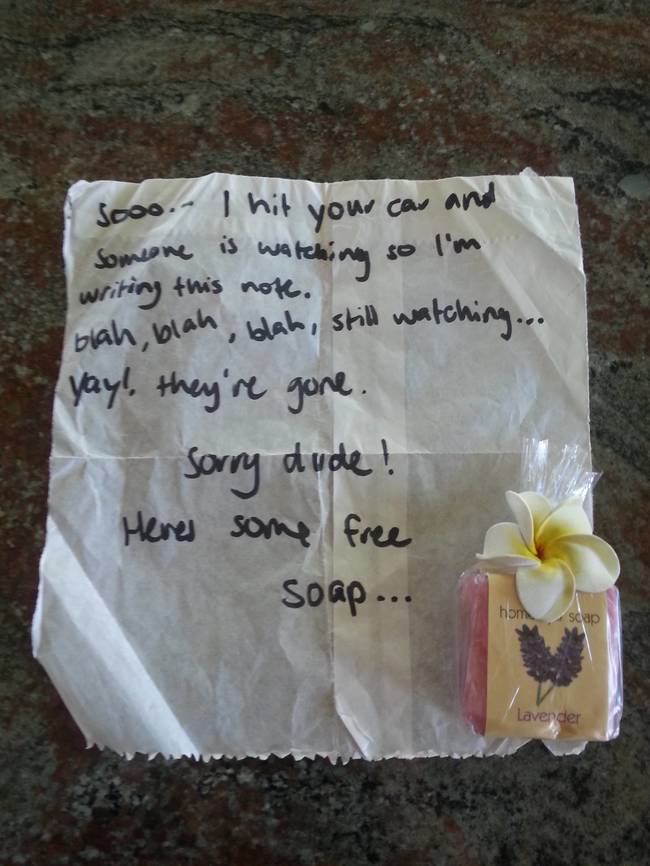 Sooo.- I hit your car and
someone is watching so I'm
writing this note.
blah, blah, blah, still watching...
Yay!. they're gone.
Sorry dude!
Heres some free
soap...
soap
Lavender